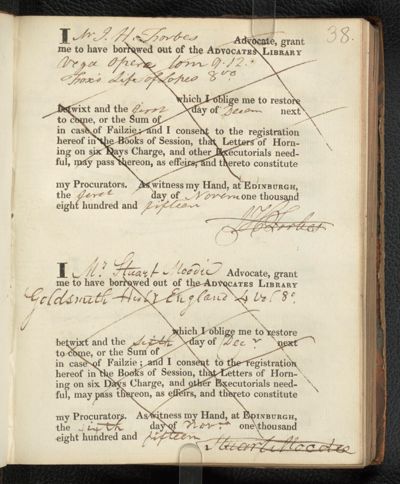 38.
I Mr. J. H. Forbes Advocate, grant
me to have borrowed out of the ADVOCATES LIBRARY
Vega Opera tom 9.12.
Fox's Life of Lopes 8vo
which I oblige me to restore
betwixt and the first day of Decem next
to come, or the Sum of
in case of Failzie; and I consent to the registration
hereof in the Books of Session, that Letters of Horn-
ing on six Days Charge, and other Executorials need-
ful, may pass thereon, as effeirs, and thereto constitute
my Procurators. As witness my Hand, at EDINBURGH,
the first day of Novem one thousand
eight hundred and fifteen
J H Forbes
I Mr Stuart Moodie Advocate, grant
me to have borrowed out of the ADVOCATES LIBRARY
Goldsmith Hist England 4 vol 8o.
which I oblige me to restore
betwixt and the sixth day of Decr. next
to come, or the Sum of
in case of Failzie; and I consent to the registration
hereof in the Books of Session, that Letters of Horn-
ing on six Days Charge, and other Executorials need-
ful, may pass thereon, as effeirs, and thereto constitute
my Procurators. As witness my Hand, at EDINBURGH,
the sixth day of Novr. one thousand
eight hundred and fifteen
Stuart Moodie